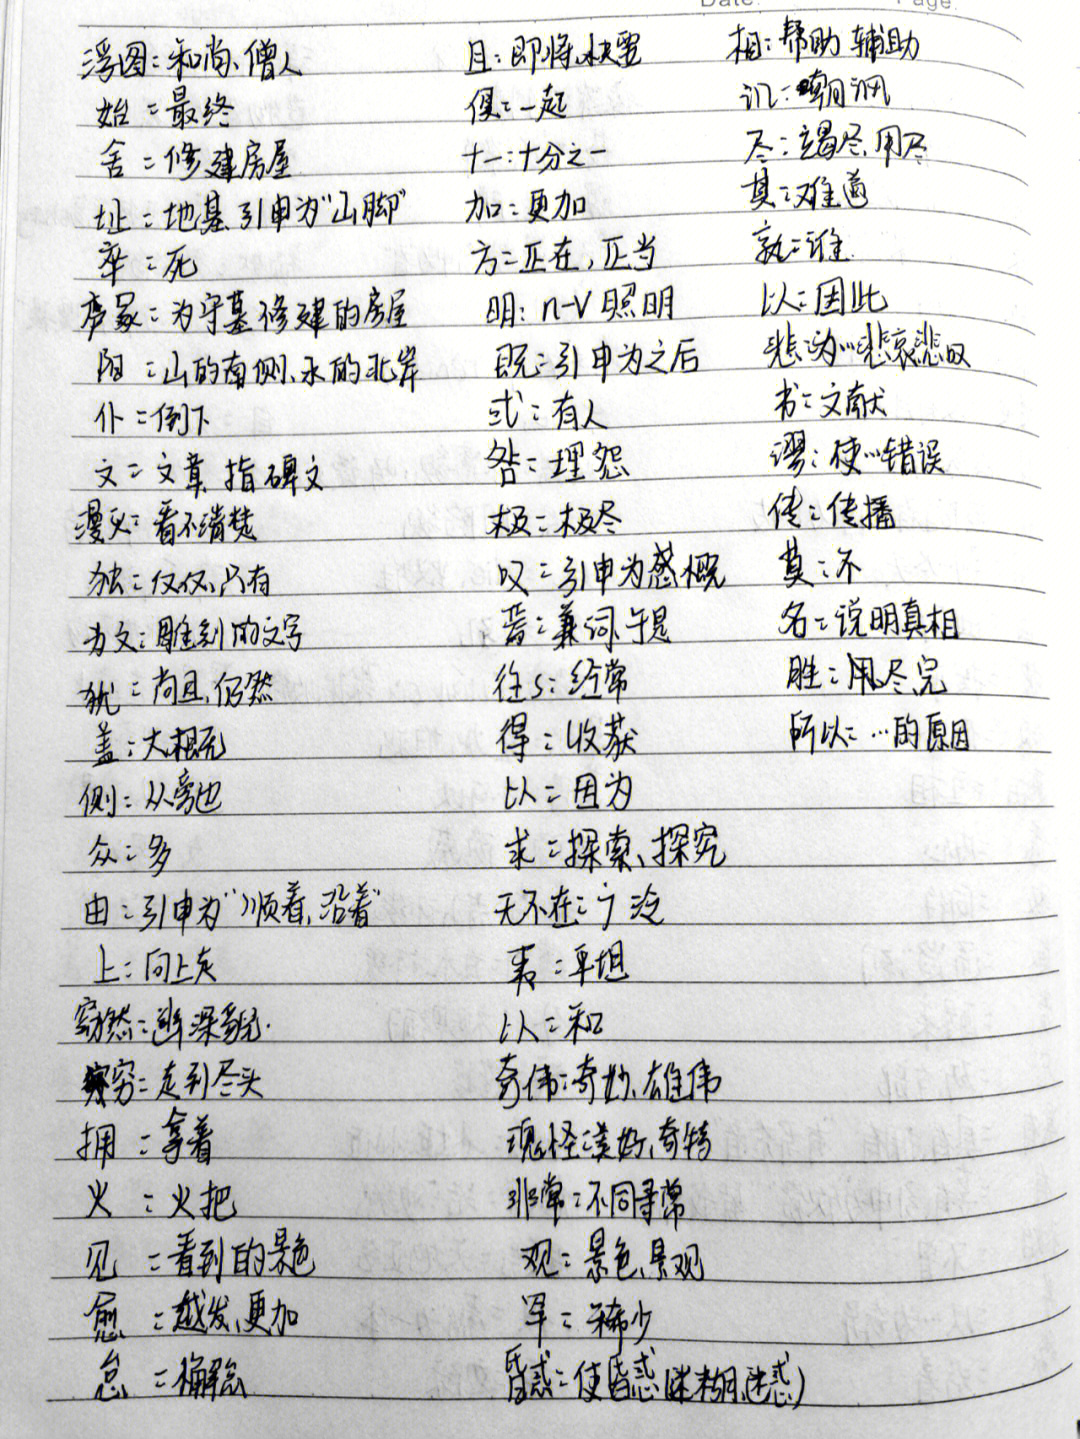 Date
Page
浮图：和尚、僧人
始：最终
舍：修建房屋
址：地基 引申为“山脚”
卒：死
庐冢：为守墓修建的房屋
阳：山的南侧、水的北岸
仆：倒下
文：文章，指碑文
漫灭：看不清楚
独：仅仅，只有
为文：雕刻的文字
犹：尚且，仍然
盖：大概
侧：从旁边
众：多
由：引申为“顺着，沿着”
上：向上走
窈然：幽深
穷：走到尽头
拥：拿着
火：火把
见：看到的景色
愈：越发，更加
怠：懈怠
且：即将、快要
俱：一起
十一：十分之一
加：更加
方：正在，正当
明：n-v 照明
既：引申为之后
或：有人
咎：埋怨
极：极尽
叹：引申为感概
焉：兼词，于是
往s：经常
得：收获
以：因为
求：探索、探究
无不在：广泛
夷：平坦
以：和
奇伟：奇妙、雄伟
瑰怪：美好、奇特
非常：不同寻常
观：景色，景观
罕：稀少
昏惑：使昏惑（迷糊、迷惑）
相：帮助 辅助
讥：嘲讽
尽：竭尽，用尽
其：难道
孰：谁
以：因此
悲：为…悲哀悲叹
书：文献
谬：使…错误
传：传播
莫：不
名：说明真相
胜：用尽，完
所以：…的原因